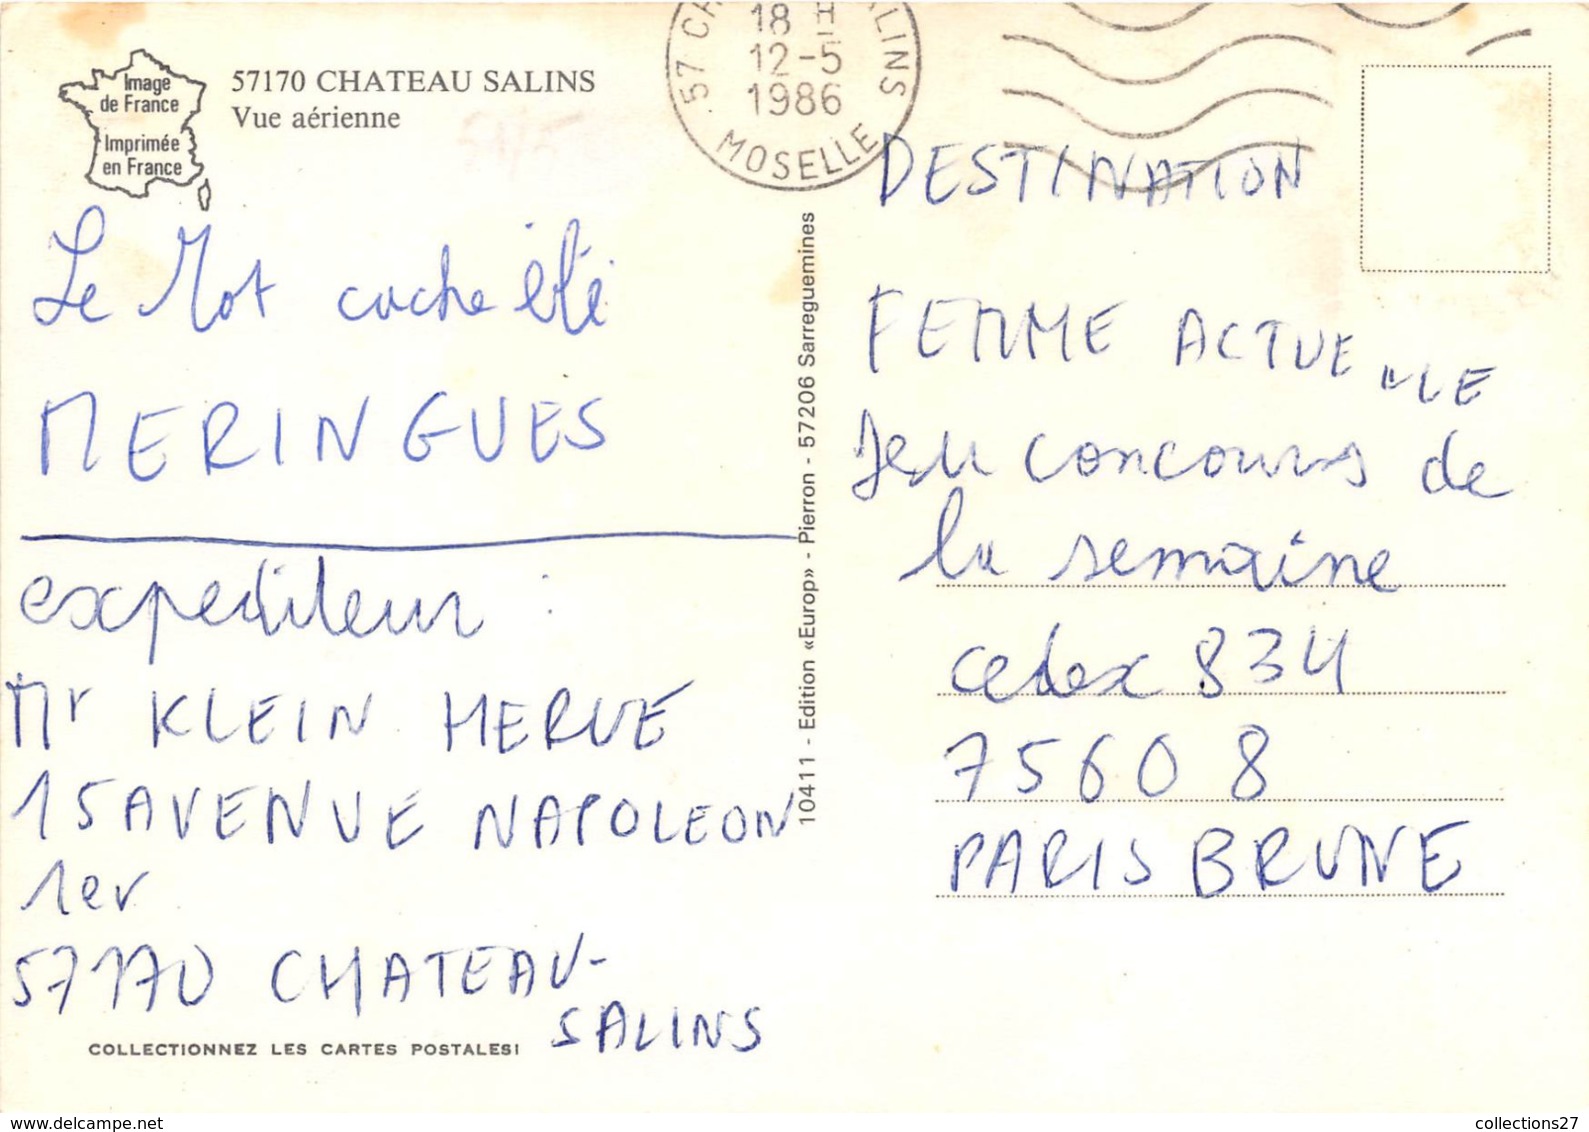 Image
de France
Imprimée
en France
57170 CHATEAU SALINS
Vue aérienne
18 H
12-5
1986
57 CH ALINS
MOSELLE
Le Mot cache été
MERINGUES
expediteur :
Mr KLEIN HERVE
15 AVENUE NAPOLEON
1er
57170 CHATEAU-
SALINS
COLLECTIONNEZ LES CARTES POSTALES!
10411 - Edition «Europ» - Pierron - 57206 Sarreguemines
DESTINATION
FEMME ACTUE "LE
Jeu concours de
la semaine
cedex 834
75608
PARIS BRUNE
collections27